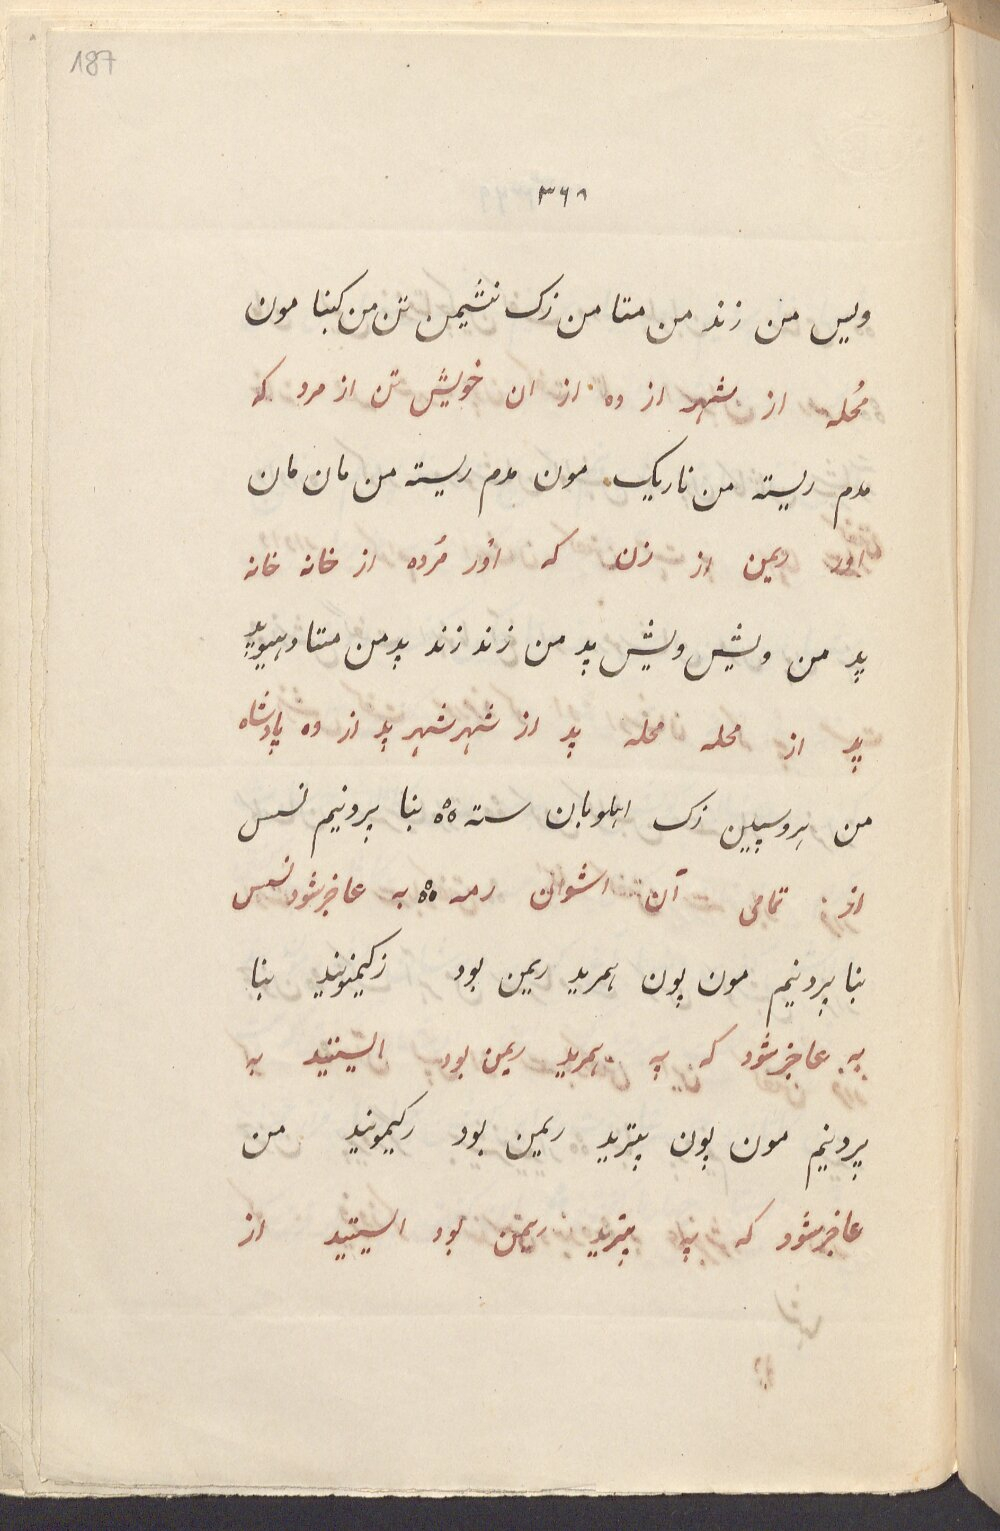 187
۳۶۸
ویس من زند من متا من زک نشیمن تن من کبنا مون
مُحله از شهر از ده از ان خویش تن از مرد که
مدم ریسته من ناریک مون مدم ریسته من مان مان
اور ریمن از زن که اُور مُرده از خانه خانه
پد من ویش ویش پد من زند زند پد من متا دهیوپد
پد از محله محله پد از شهر شهر پد از ده پادشاه
من هروسپین زک اهلوبان سته ٥٥ بنا پرونیم نسس
از تمامی آن اشوان رمه ٥٥ به عاجز شود نسس
بنا پرونیم مون پون همرید ریمن بود زکیمنونید بنا
به عاجز شود که په همرید ریمن بود الستید به
پرونیم مون پون پیترید ریمن بود رکیمونید من
عاجز شود که په پیترید ریمن بود الستید از